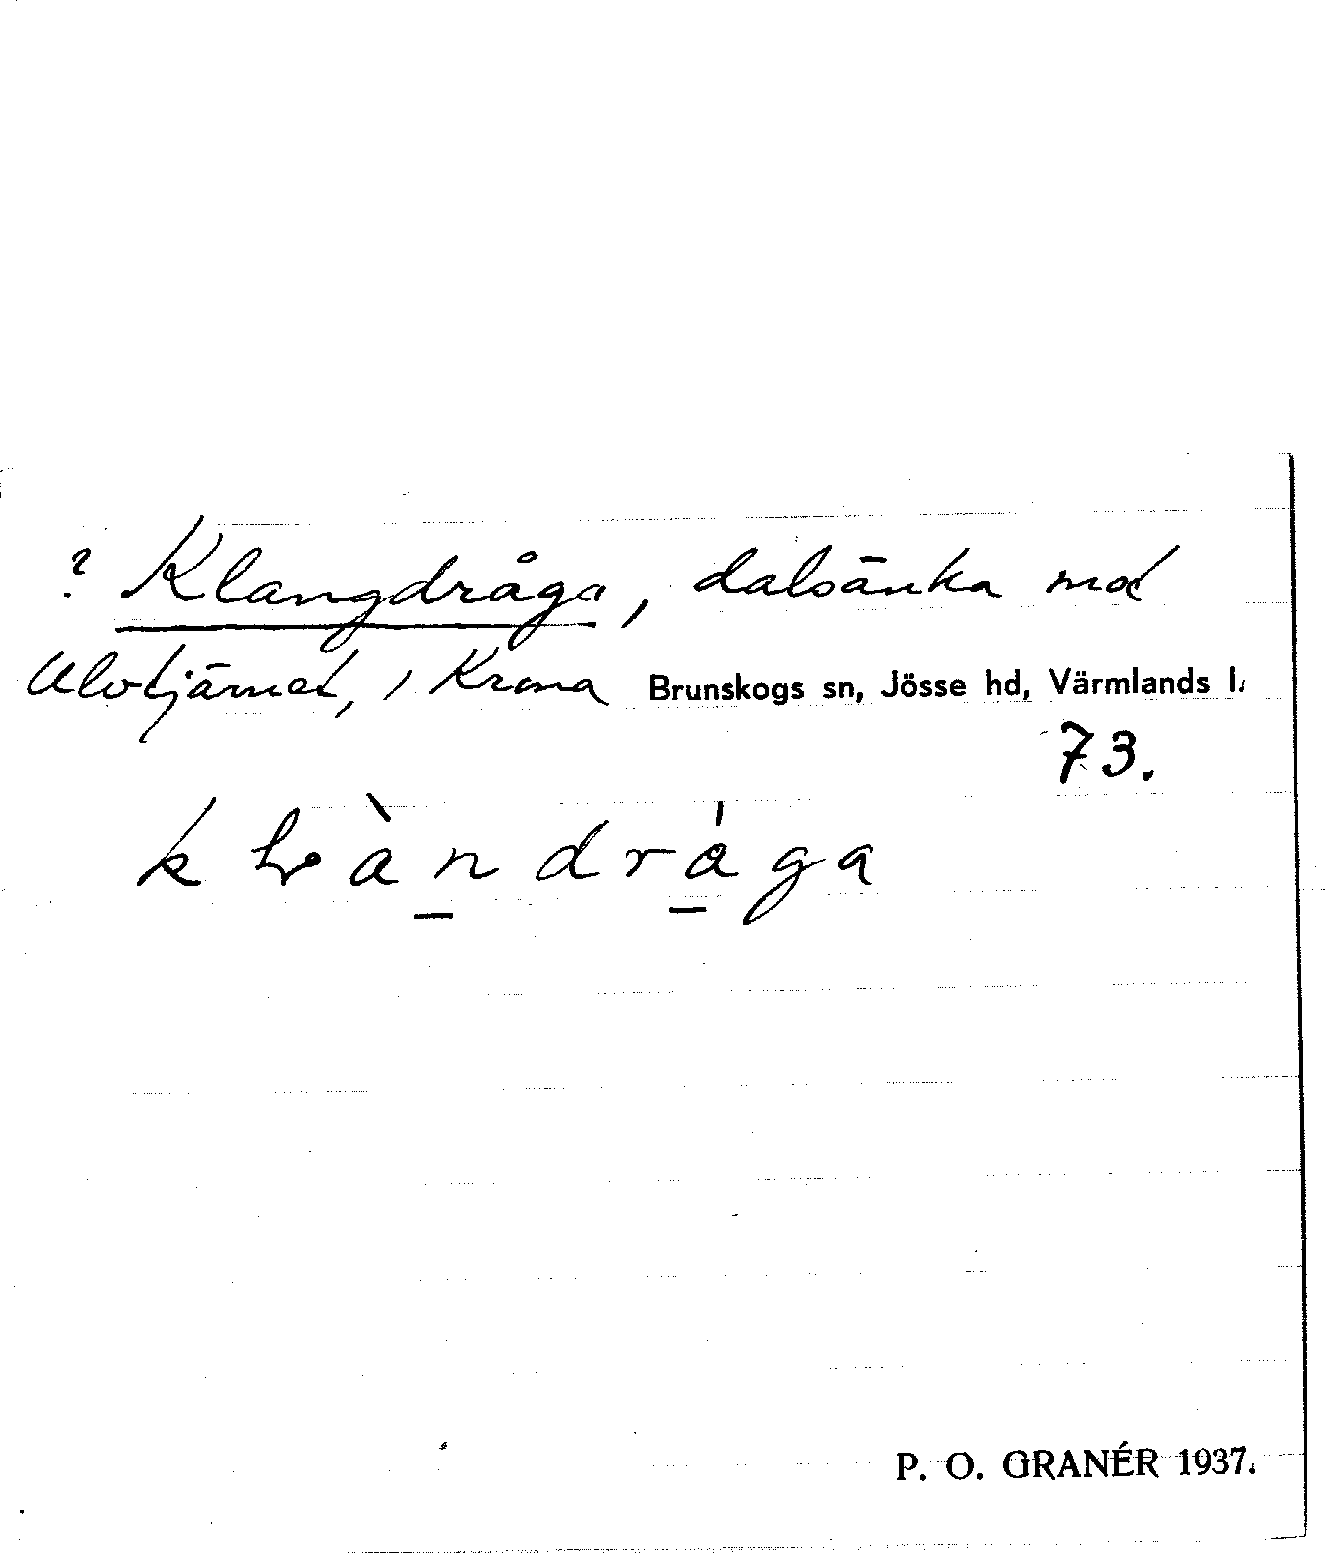 ? Klangdråga, dalsänka mot
Ulvtjärnet, i Krona Brunskogs sn, Jösse hd, Värmlands l.
73.
P. O. GRANÉR 1937.